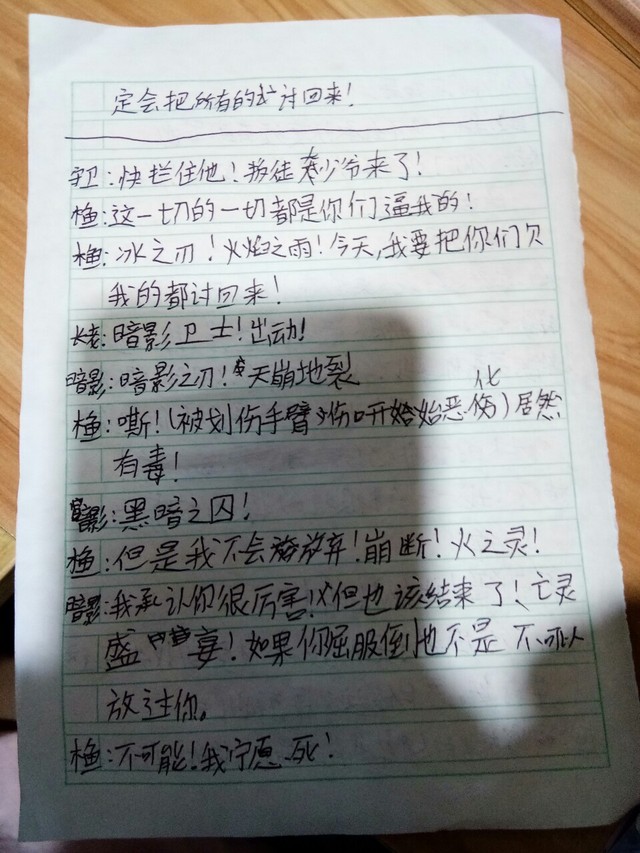 定会把所有的讨回来!
守卫:快拦住他!叛徒龚少爷来了!
楂:这一切的一切都是你们逼我的!
楂:冰之刃!火焰之雨!今天,我要把你们欠
我的都讨回来!
长老:暗影卫士!出动!
暗影:暗影之刃!天崩地裂
楂:嘶!(被划伤手臂,伤口开始始恶化)居然
有毒!
暗影:黑暗之囚!
楂:但是我不会放弃!崩断!火之灵!
暗影:我承认你很厉害!但也该结束了!亡灵
盛宴!如果你屈服倒也不是不可以
放过你。
楂:不可能!我宁愿死!